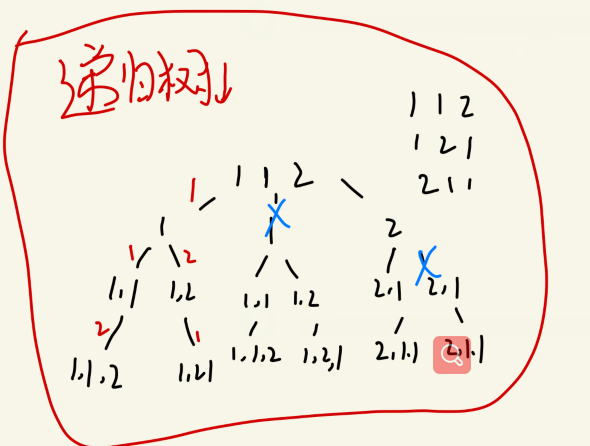 递归树↓
1 1 2
1 2 1
2 1 1
1 1 1 2
1 1 2
1 2
1,1 1,2 1,1 1,2 2,1 2,1
2 1
1,1,2 1,2,1 1,1,2 1,2,1 2,1,1 2,1,1